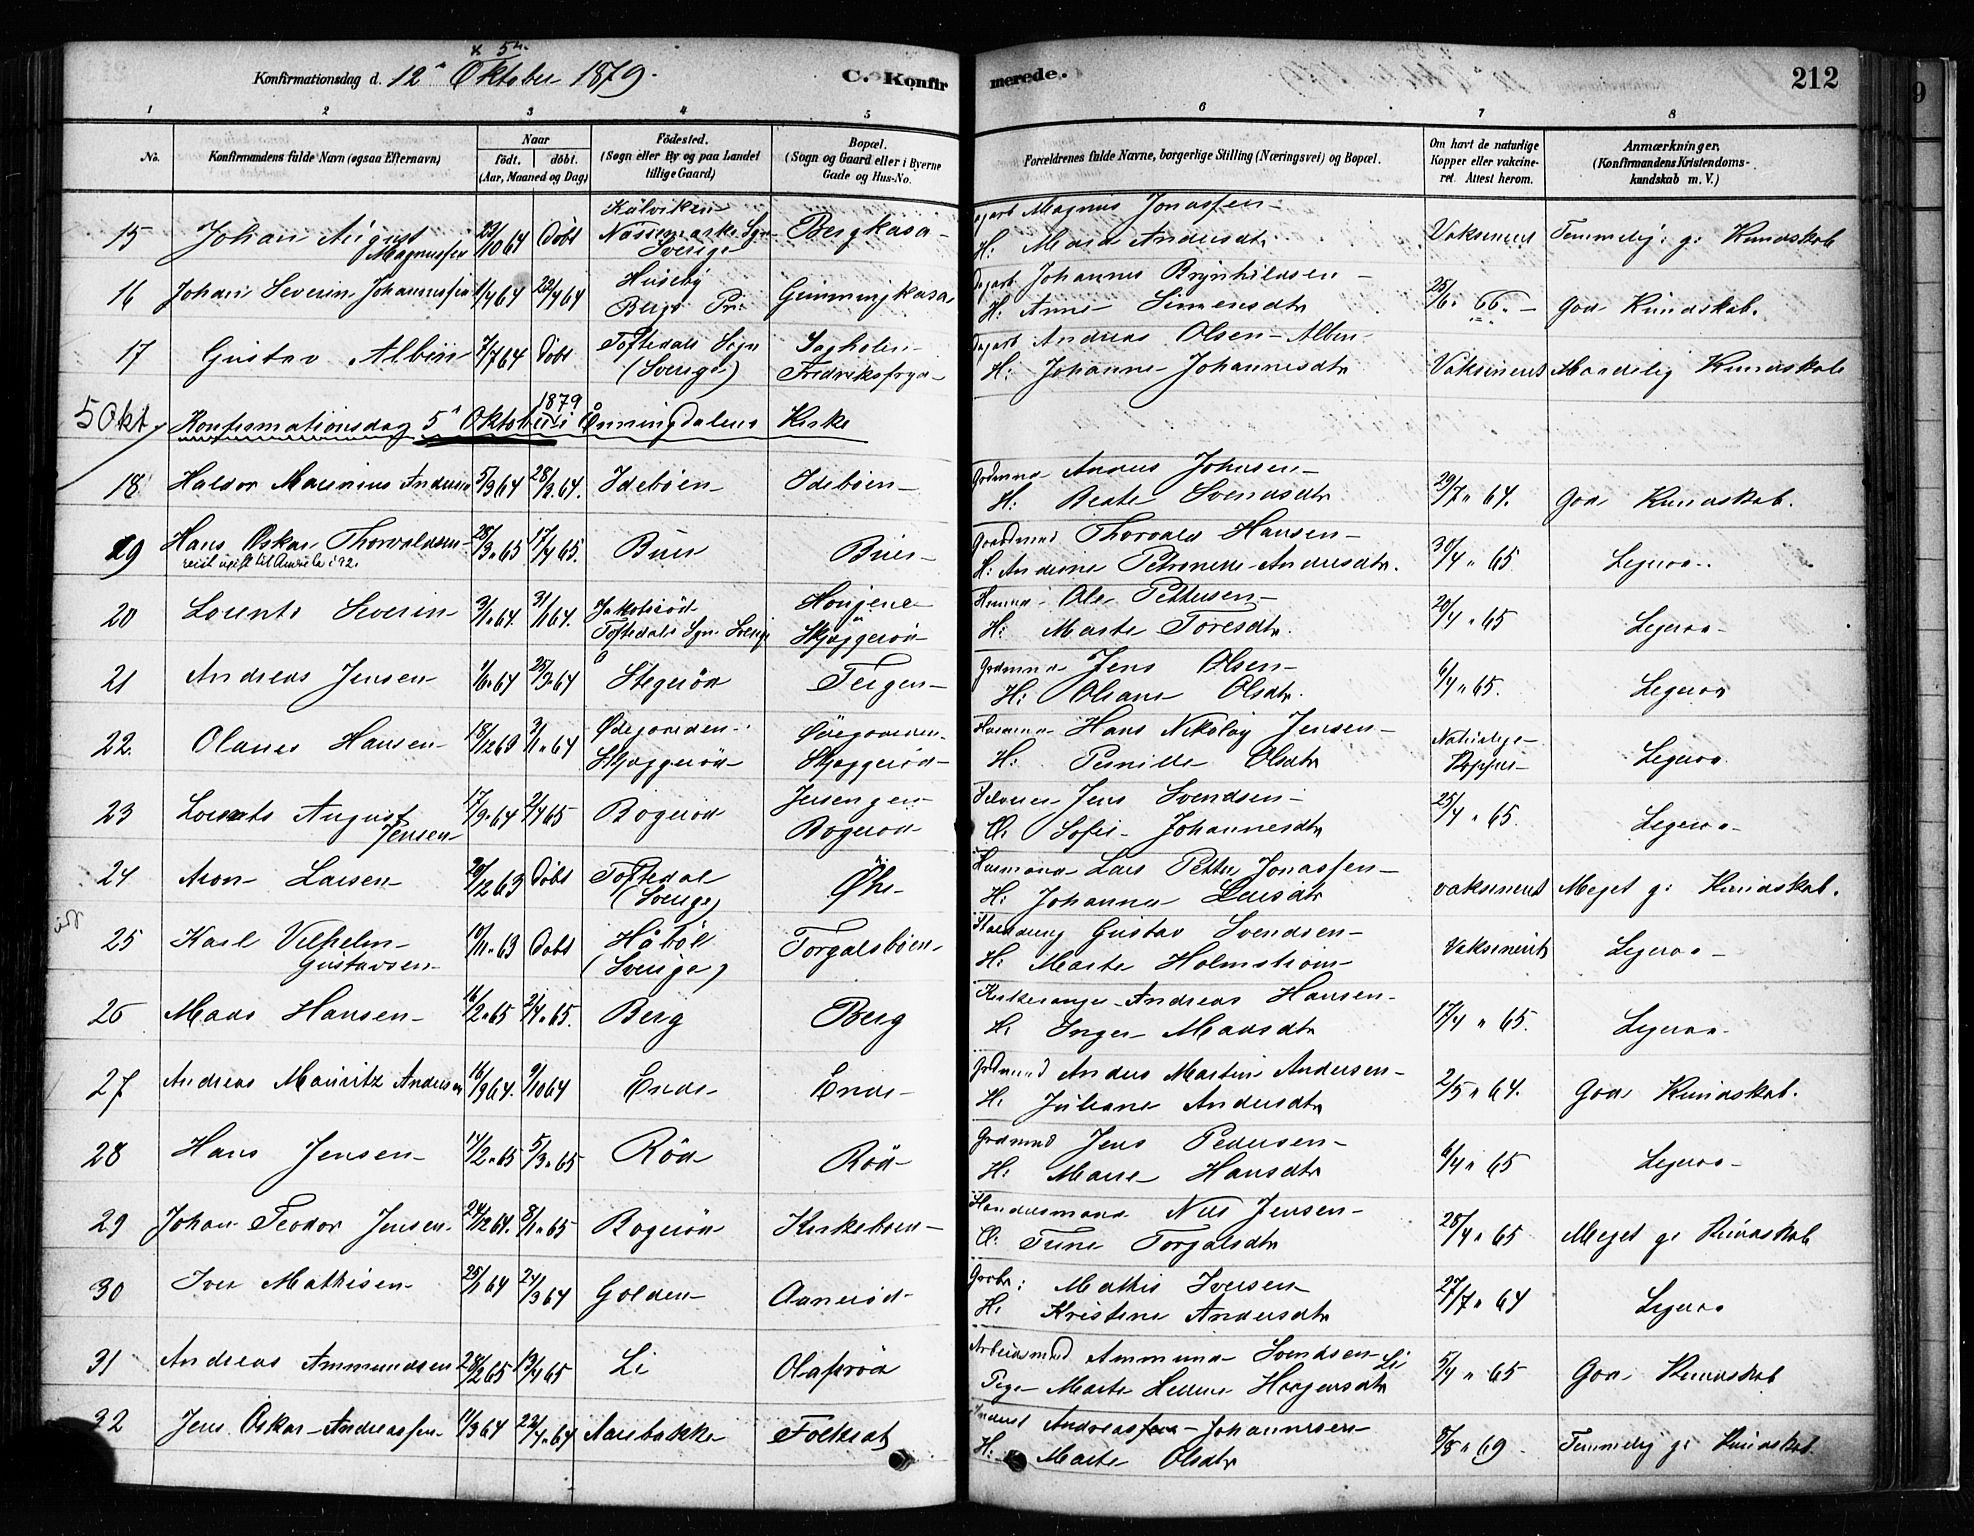 x 5te
Konfirmationsdag d. 12te Oktober 1879.
C. Konfirmerede.
212
1 2 3 4 5 6 7 8
No. Konfirmandens fulde Navn (ogsaa Efternavn) Naar födt. döbt. (Aar, Maaned og Dag) Födested. (Sogn eller By og paa Landet tillige Gaard) Bopæl. (Sogn og Gaard eller i Byerne Gade og Hus-No. Forældrenes fulde Navne, borgerlige Stilling (Næringsvei) og Bopæl. Om havt de naturlige Kopper eller vakcineret. Attest herom. Anmærkninger. (Konfirmandens Kristendomskundskab m. V.)
15 Johan August Magnussen 23/10 64 Döbt Sverige Bergkasa Magnus Jonassen
H: Maria Andersdtr Vaksineret Temmelig g: Kundskab
16 Johan Severin Johannessen 1/4 64 22/4 64 Huseby Bergs Pr: Johannes Brynhildsen
H: Anne Simensdtr 25/6 66 God Kundskab.
17 Gustav Albin 7/7 64 Döbt Töftedals Sogn (Sverige) Sagholen Fredriksfryd Andreas Olsen Albin
H: Johanne Johannesdtr Vaksineret Maadelig Kundskab
5 Okt. Konfirmationsdag 5te Oktober 1879 i Ånningdalens Kirke
18 Haldor Maurinius Andersen 5/3 64 28/3 64. Idebøen Idebøen Grdmnd Anders Johnsen
H: Beate Svendsdtr 29/7 64. God Kundskab.
19 Hans Oskar Thorvaldsen 28/3 65 17/4 65. Buer Buer Gaardmnd Thorvald Hansen
reist ugift til Amrika i 92.
H: Andrine Petronelle Andersdtr. 30/4 65 Ligesaa
20 Lorents Severin 3/1 64. 31/1 64. Jakobsröd Töftedals Sgn Sverige Skjøggeröd Husmnd Ole Pettersen
H: Marte Toresdtr. 20/4 65 Ligesaa
21 Andreas Jensen 1/1 64 25/3 64 Stegeröd Teigen Grdmnd Jens Olsen
H: Oliane Olsdtr. 6/4 65. Ligesaa
22. Olaves Hansen 18/12 63 3/1 64 Ødegaarden Skjøggeröd Ødegaarden Skjøggeröd Husmnd Hans Nikolay Jensen
H: Pernille Olsdtr Naturlige Kopper Ligesaa
23 Lorents August Jensen 17/9 64 2/4 65 Bogeröd Jensengen Bogeröd Selveier Jens Svendsen
Sofie Johannesdtr 25/4 65. Ligesaa
24 Aron Larsen 20/12 63 Döbt Töftedal (Sverige) Øhr Husmand Lars Petter Jonassen
H: Johanna Larsdtr vaksineret Meget g: Kundskab.
25 Karl Vilhelm Gustavsen 10/11 63 Döbt Håböl (Sverige) Torgalsbøen Gustav Svendsen
H: Marte Holmström Vaksineret Ligesaa
26 Mads Hansen 16/2 65 2/4 65. Berg Berg Kirkesanger Andreas Hansen
H: Inger Madsdtr 17/4 65. Ligesaa
27 Andreas Mauritz Andersen 16/9 64. 9/10 64 Ende Ende Grdmnd Anders Martin Andersen
H: Juliane Andersdtr 2/5 64. God Kundskab.
28 Hans Jensen 14/2 65 5/3 65 Röd Röd Grdmnd Jens Pedersen
H: Marie Hansdtr 6/4 65 Ligesaa
29 Johan Teodor Jensen 24/12 64. 8/1 65 Bogeröd Kirkebøen Handelsmand Nils Jensen
Trine Torgalsdtr 28/4 65 Meget g: Kundskab
30 Iver Mathisen 25/1 64 24/3 64 Golden Aaneröd Grdbr: Mathis Iversen
H: Kristine Andersdtr 27/7 64 Ligesaa
31 Andreas Ammundsen 28/2 65 13/4 65 Li Olafsröd Arbeidsmnd Ammund Svendsen Li
Pige Marte Helene Haagensdtr 5/4 65 God Kundskab
32 Jens Oskar Andreassen 11/3 64 22/4 64 Aarebakke Folkeat Inderst Andreas Johannesen
H: Marte Olsdtr 8/8 69 Temmelig g: Kundskab.